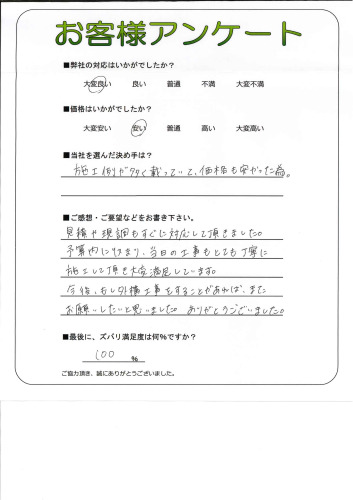 お客様アンケート
■弊社の対応はいかがでしたか?
大変良い 良い 普通 不満 大変不満
■価格はいかがでしたか?
大変安い 安い 普通 高い 大変高い
■当社を選んだ決め手は?
施工例が多く載っていて、価格も安かった為。
■ご感想・ご要望などをお書き下さい。
見積や現調もすぐに対応して頂きました。
予算内に収まり、当日の工事もとても丁寧に
施工して頂き大変満足しています。
今後、もし外構工事をすることがあれば、また
お願いしたいと思いました。ありがとうございました。
■最後に、ズバリ満足度は何%ですか?
100 %
ご協力頂き、誠にありがとうございました。